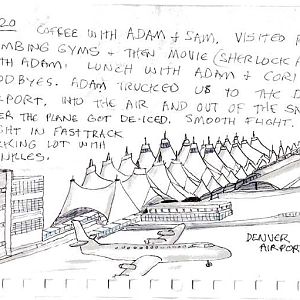 20 COFFEE WITH ADAM + SAM. VISITED
MBING GYMS + THEN MOVIE (SHERLOCK
TH ADAM. LUNCH WITH ADAM + CORI
ODBYES. ADAM TRUCKED US TO THE D
PORT, INTO THE AIR AND OUT OF THE SN
ER THE PLANE GOT DE-ICED. SMOOTH FLIGHT.
GHT IN FASTTRACK
KING LOT WITH
NKLES.
DENVER
AIRPOR